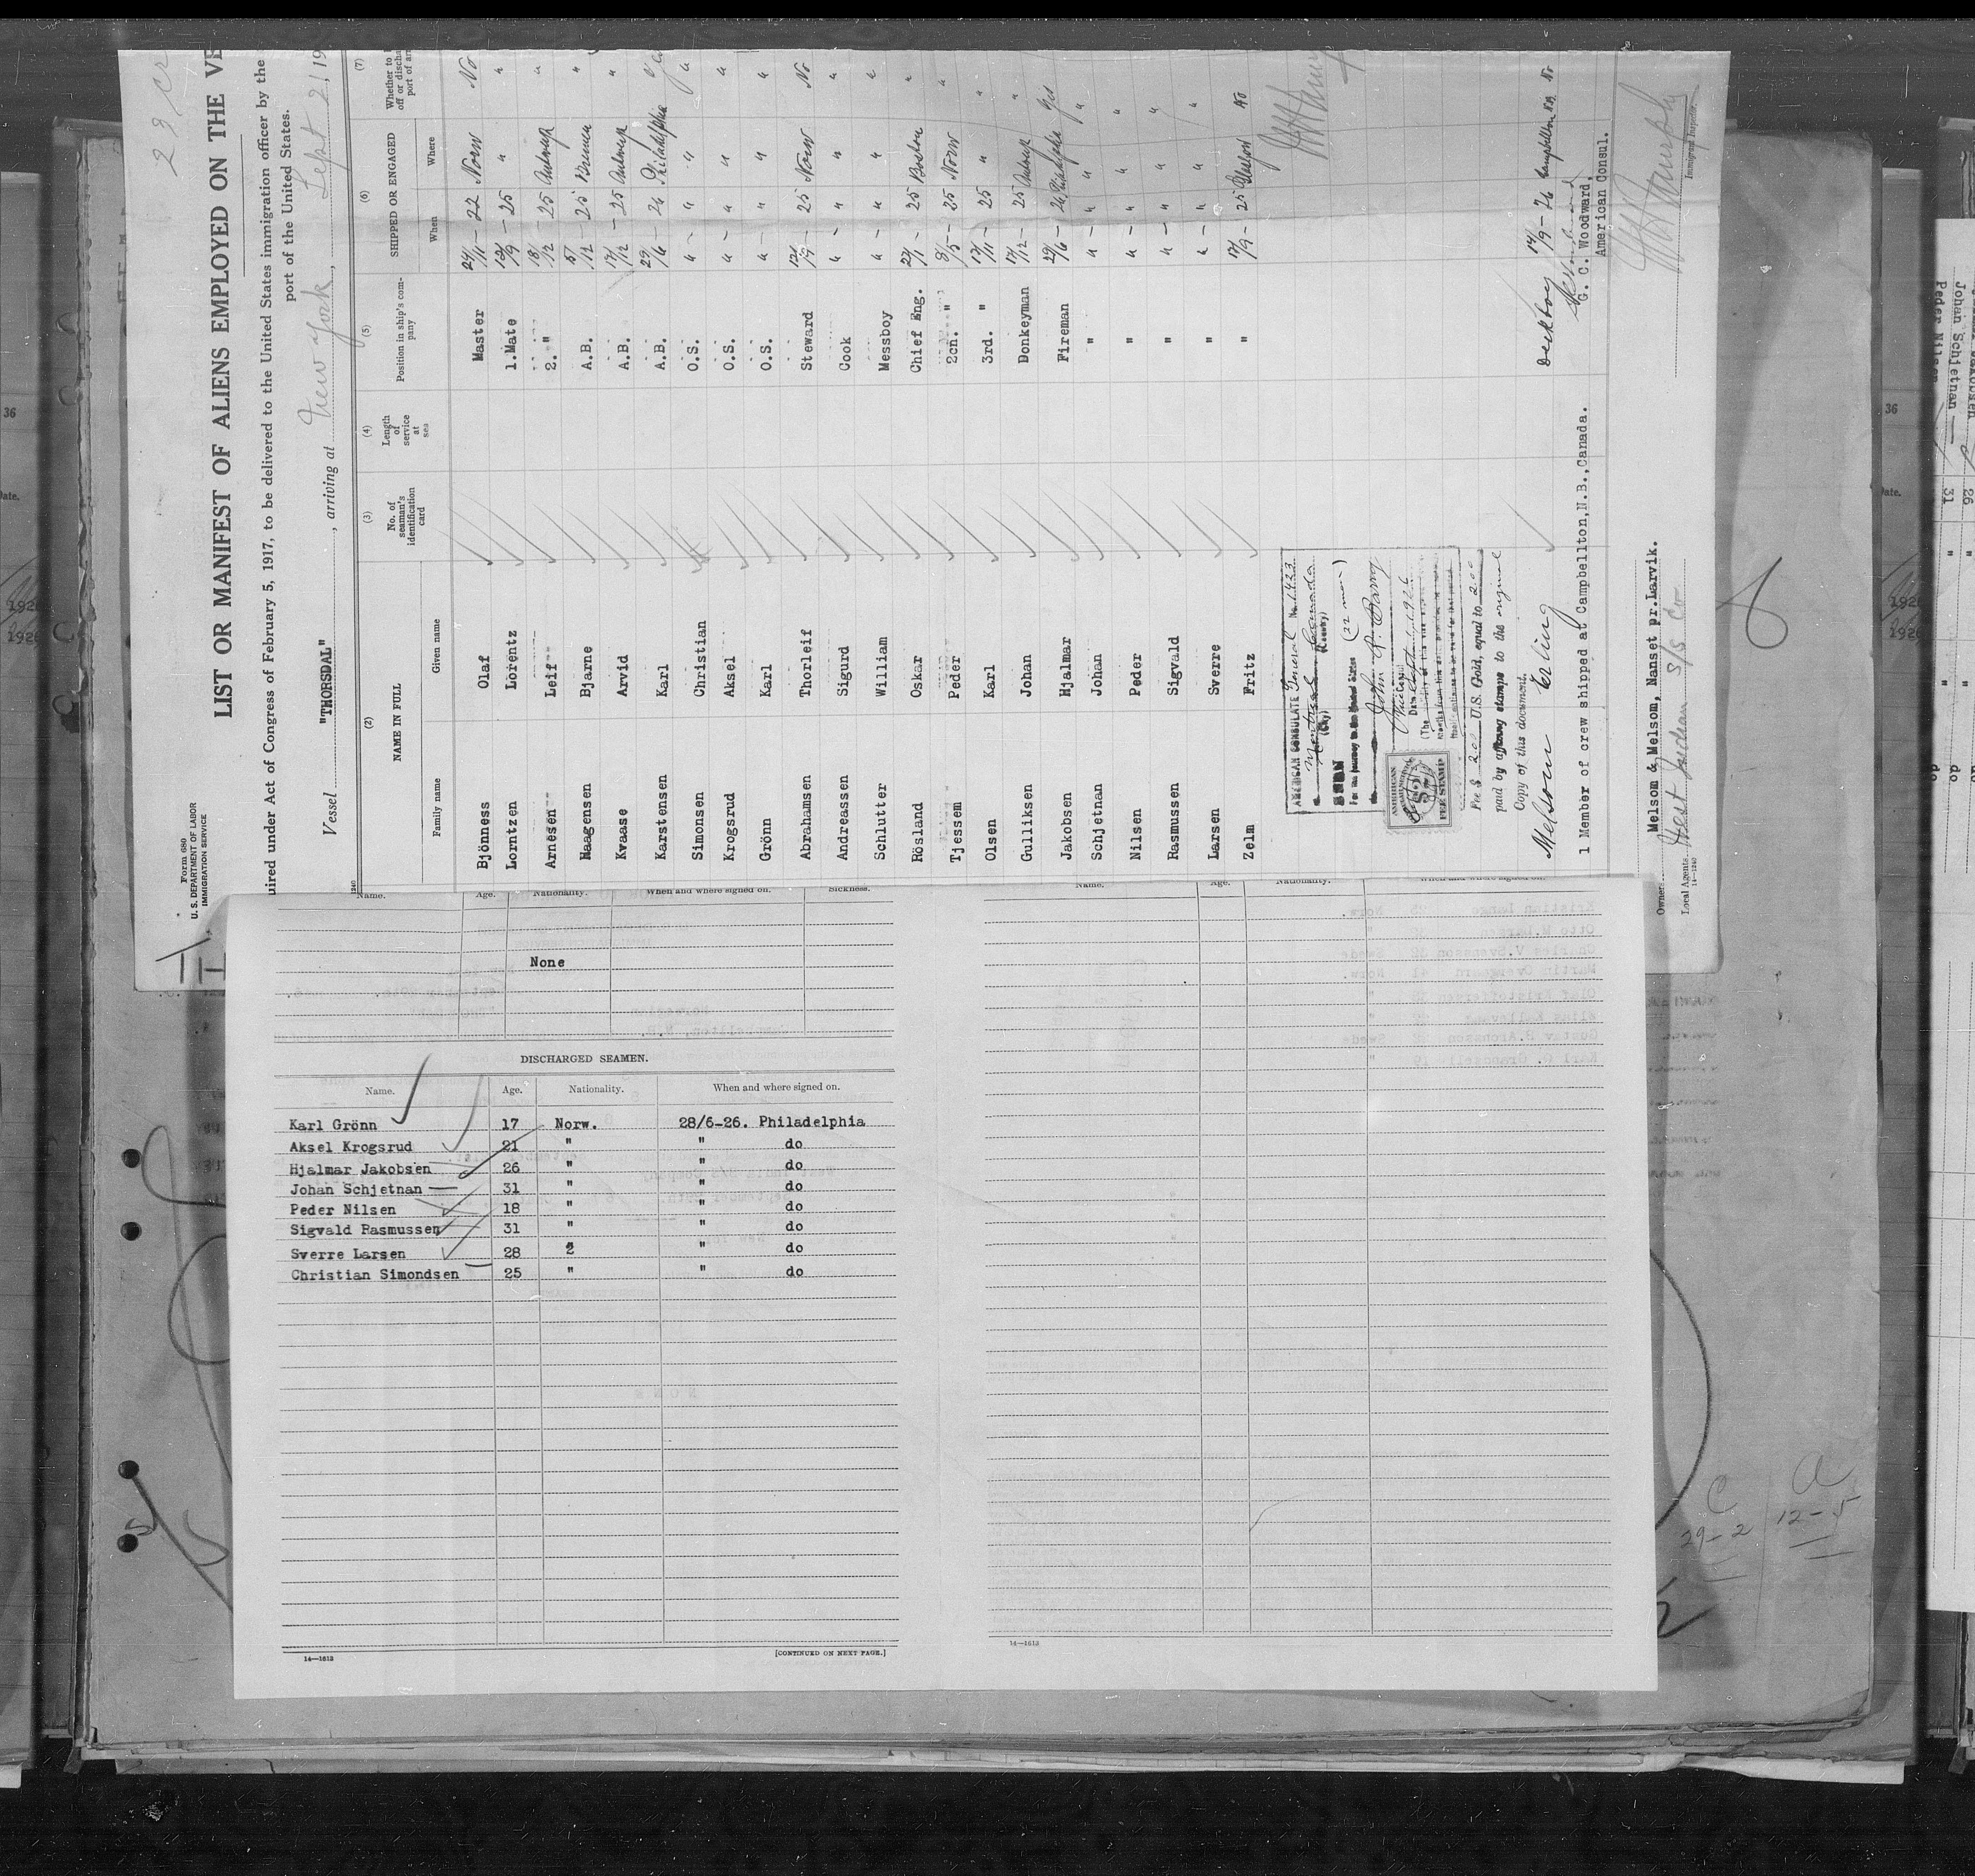 Form 680
U. S. DEPARTMENT OF LABOR
IMMIGRATION SERVICE
LIST OR MANIFEST OF ALIENS EMPLOYED ON THE VE
uired under Act of Congress of February 5, 1917, to be delivered to the United States immigration officer by the
port of the United States.
Vessel "THORSDAL", arriving at New York, Sept 21, 19
(2) (3) (4) (5) (6) (7)
NAME IN FULL No. of seaman's identification card Length of service at sea Position in ship's company SHIPPED OR ENGAGED
Family name Given name When Where
Bjönness Olaf Master 24/11 - 22 Norw No
Lorntzen Lorentz 1.Mate 12/9 - 25 " "
Arnesen Leif 2. " 18/12 - 25 Antwerp "
Haagensen Bjarne A.B. 5/12 - 25 "
Kvaase Arvid A.B. 17/12 - 25 Antwerp "
Karstensen Karl A.B. 29/6 - 26 Philadelphia
Simonsen Christian O.S. " - " " "
Krogsrud Aksel O.S. " - " " "
Grönn Karl O.S. " - " " "
Abrahamsen Thorleif Steward 12/9 - 25 Norw No
Andreassen Sigurd Cook " - " " "
Schlutter William Messboy " - " " "
Rösland Oskar Chief Eng. 27/1 - 25 Boston "
Tjessem Peder 2cn. " 8/5 - 25 Norw "
Olsen Karl 3rd. " 12/11 - 25 " "
Gulliksen Johan Donkeyman 17/12 - 25 Antwerp "
Jakobsen Hjalmar Fireman 29/6 - 26 Philadelphia yes
Schjetnan Johan " " - " " "
Nilsen Peder " " - " " "
Rasmussen Sigvald " " - " " "
Larsen Sverre " " - " " "
Zelm Fritz " 12/9 - 25 No
AMERICAN CONSULATE General No. 1423
Montreal Canada
(City) (Country)
SEEN
(22 men)
John R. Barry
Vice Consul
AMERICAN
FEE STAMP
Fee $ 2.00 U.S. Gold, equal to 2.00
paid by affixing stamps to the original
Copy of this document.
Melsom Erling Deckboy 14/9 - 26 Campbellton No
G. C. Woodward,
1 Member of crew shipped at Campbellton,N.B.,Canada. American Consul.
Owner Melsom & Melsom, Nanset pr.Larvik.
Local Agents West Indian S/S Co
Immigrant Inspector.
14—1240
Name. Age. Nationality. When and where signed on. Sickness.
None
DISCHARGED SEAMEN.
Name. Age. Nationality. When and where signed on.
Karl Grönn 17 Norw. 28/6-26. Philadelphia
Aksel Krogsrud 21 " " do
Hjalmar Jakobsen 26 " " do
Johan Schjetnan 31 " " do
Peder Nilsen 18 " " do
Sigvald Rasmussen 31 " " do
Sverre Larsen 28 2 " do
Christian Simondsen 25 " " do
14—1612 [CONTINUED ON NEXT PAGE.]
Name. Age. Nationality. When and where signed on.
14—1612
C A
29-2 12-5
36
Date.
1926
1926
36
Date.
1926
1926
Johan Schjetnan
Peder Nilsen
26
31
do
do